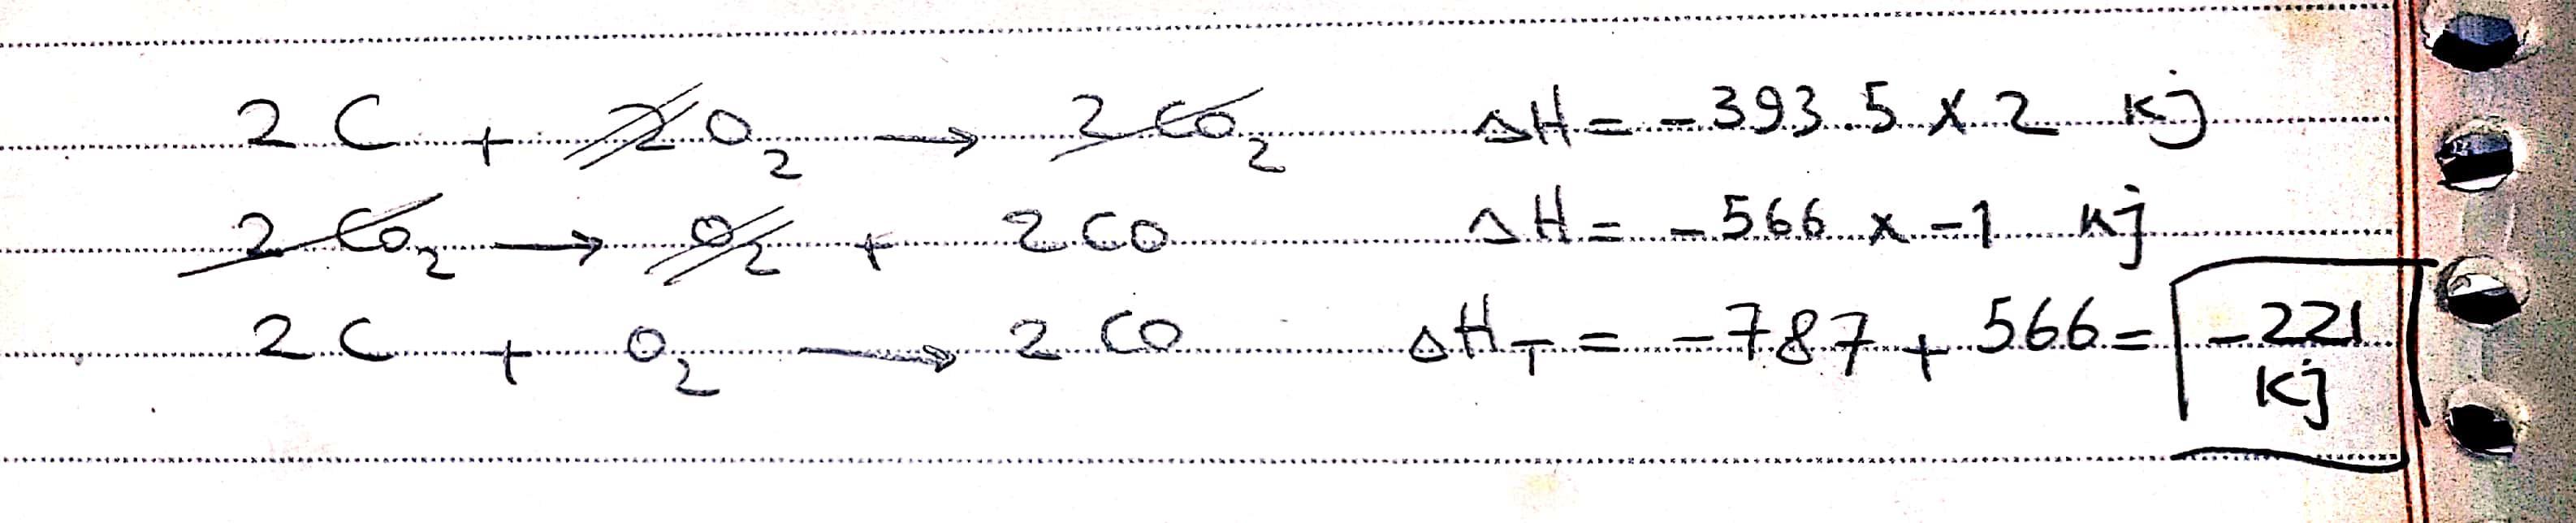 2 C + 2 O₂ → 2 CO₂ ΔH = -393.5 x 2 kj
2 CO₂ → O₂ + 2 CO ΔH = -566 x -1 kj
2 C + O₂ → 2 CO ΔH_T = -787 + 566 = -221 kj